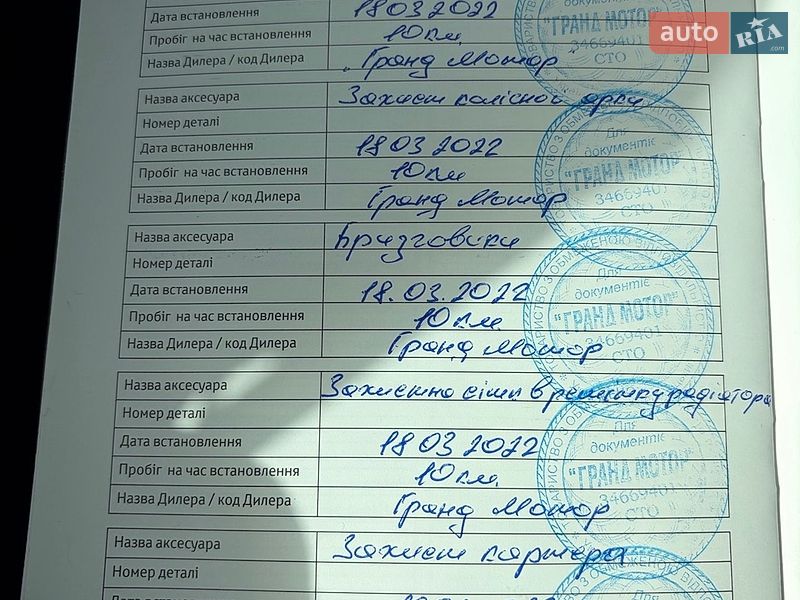 Дата встановлення 18.03.2022
Пробіг на час встановлення 10 км
Назва Дилера / код Дилера Гранд Мотор
"ГРАНД МОТОР"
34669401
СТО
auto RIA .com
Назва аксесуара Захист колісної арки
Номер деталі
Дата встановлення 18 03 2022
Пробіг на час встановлення 10 км
Назва Дилера / код Дилера Гранд Мотор
Для
документів
"ГРАНД МОТОР"
34669401
СТО
Назва аксесуара Бризговики
Номер деталі
Дата встановлення 18.03.2022
Пробіг на час встановлення 10 км
Назва Дилера / код Дилера Гранд Мотор
Для
документів
"ГРАНД МОТОР"
34669401
СТО
Назва аксесуара Захистна сітка в решітку радіатора
Номер деталі
Дата встановлення 18 03 2022
Пробіг на час встановлення 10 км
Назва Дилера / код Дилера Гранд Мотор
Для
документів
"ГРАНД МОТОР"
34669401
СТО
Назва аксесуара Захист картера
Номер деталі